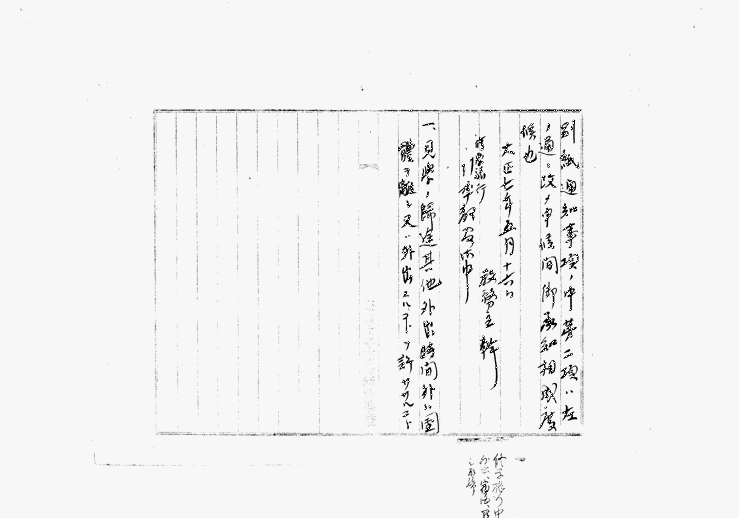 別紙通知事項ノ中第二項ハ左
ノ通ニ改メ申候間御承知相成度
候也
大正七年五月十六日
教務主幹
修学旅行
引率教官御中
一、見学ノ帰途其他外出時間外ニ團
體ヲ離レ又ハ外出スルコトヲ許サザルコト
修学旅行中